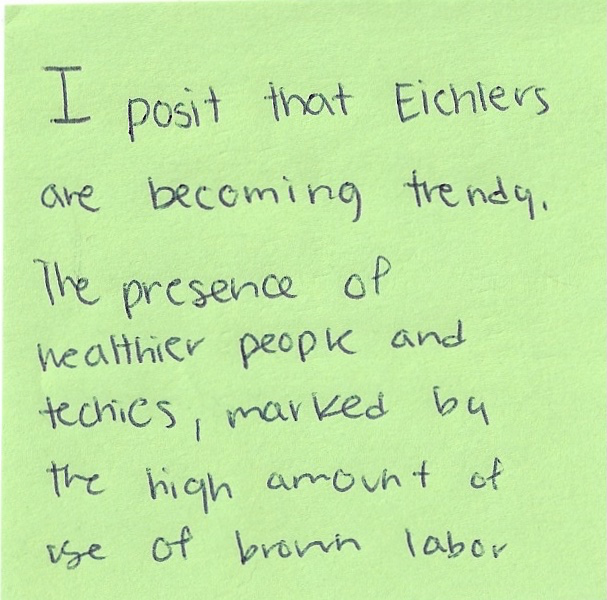 I posit that Eichlers
are becoming trendy.
The presence of
wealthier people and
techies, marked by
the high amount of
use of brown labor